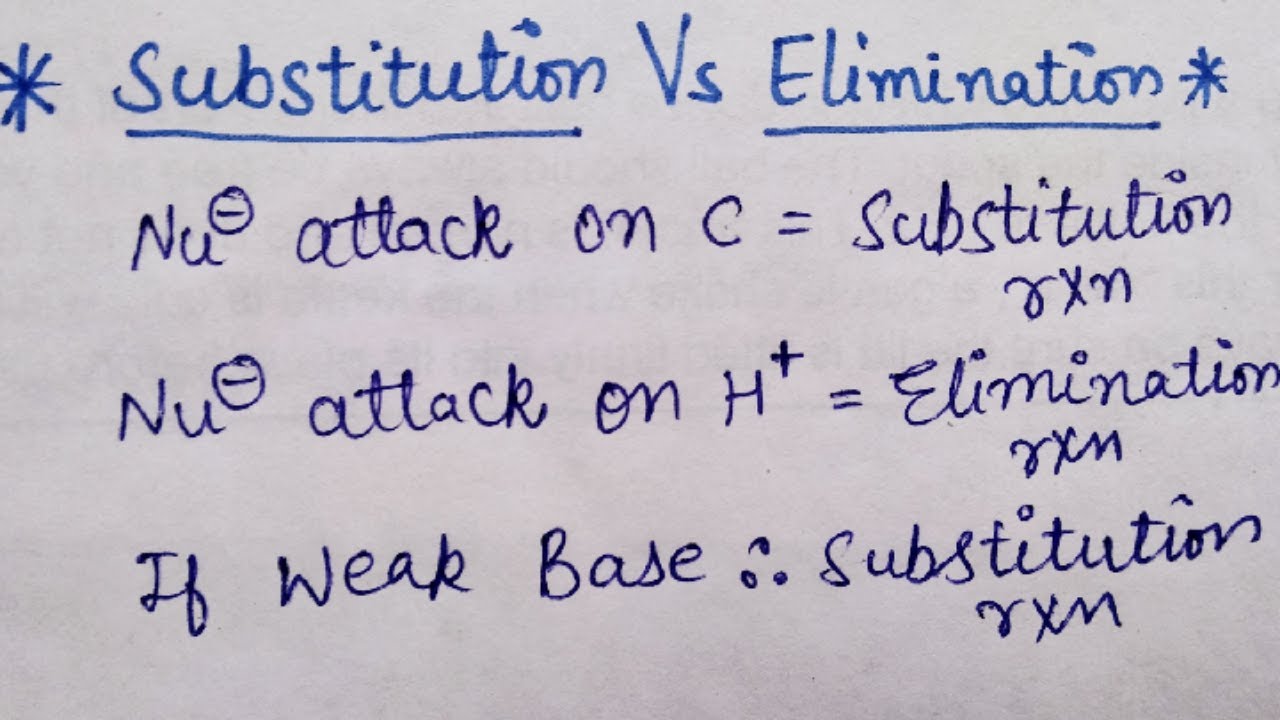 * Substitution Vs Elimination *
Nu⊖ attack on C = Substitution
rxn
Nu⊖ attack on H+ = Elimination
rxn
If Weak Base ∴ Substitution
rxn